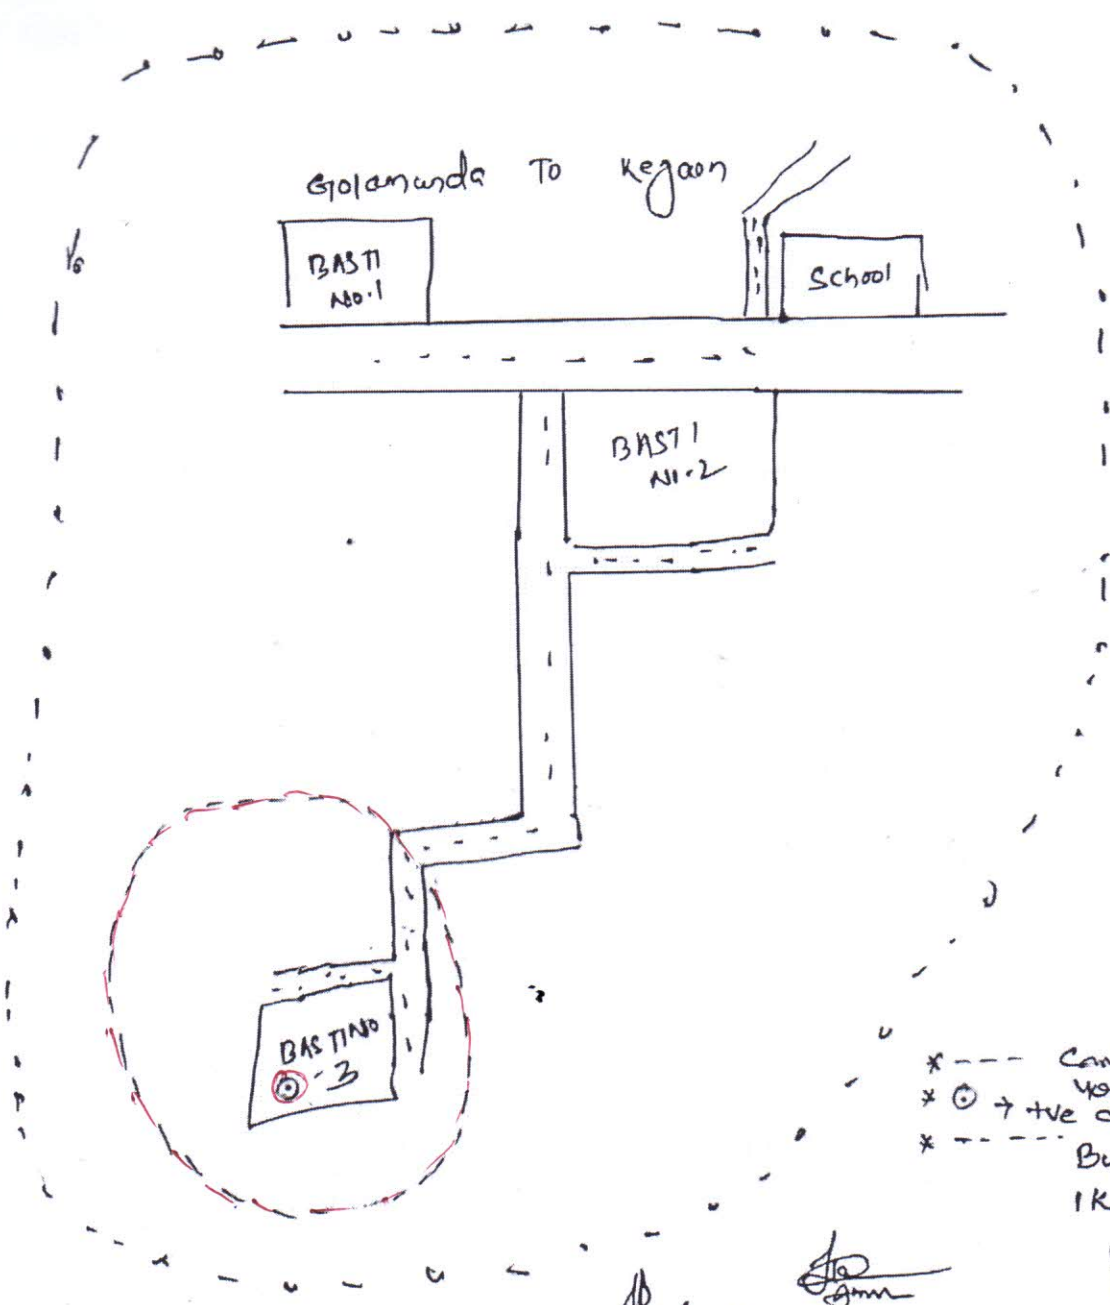 Golamunda To Kegaon
BASTI
No.1
School
BASTI
No.2
BASTI NO
-3
* ----
* ⊙ → +ve
* -- ---